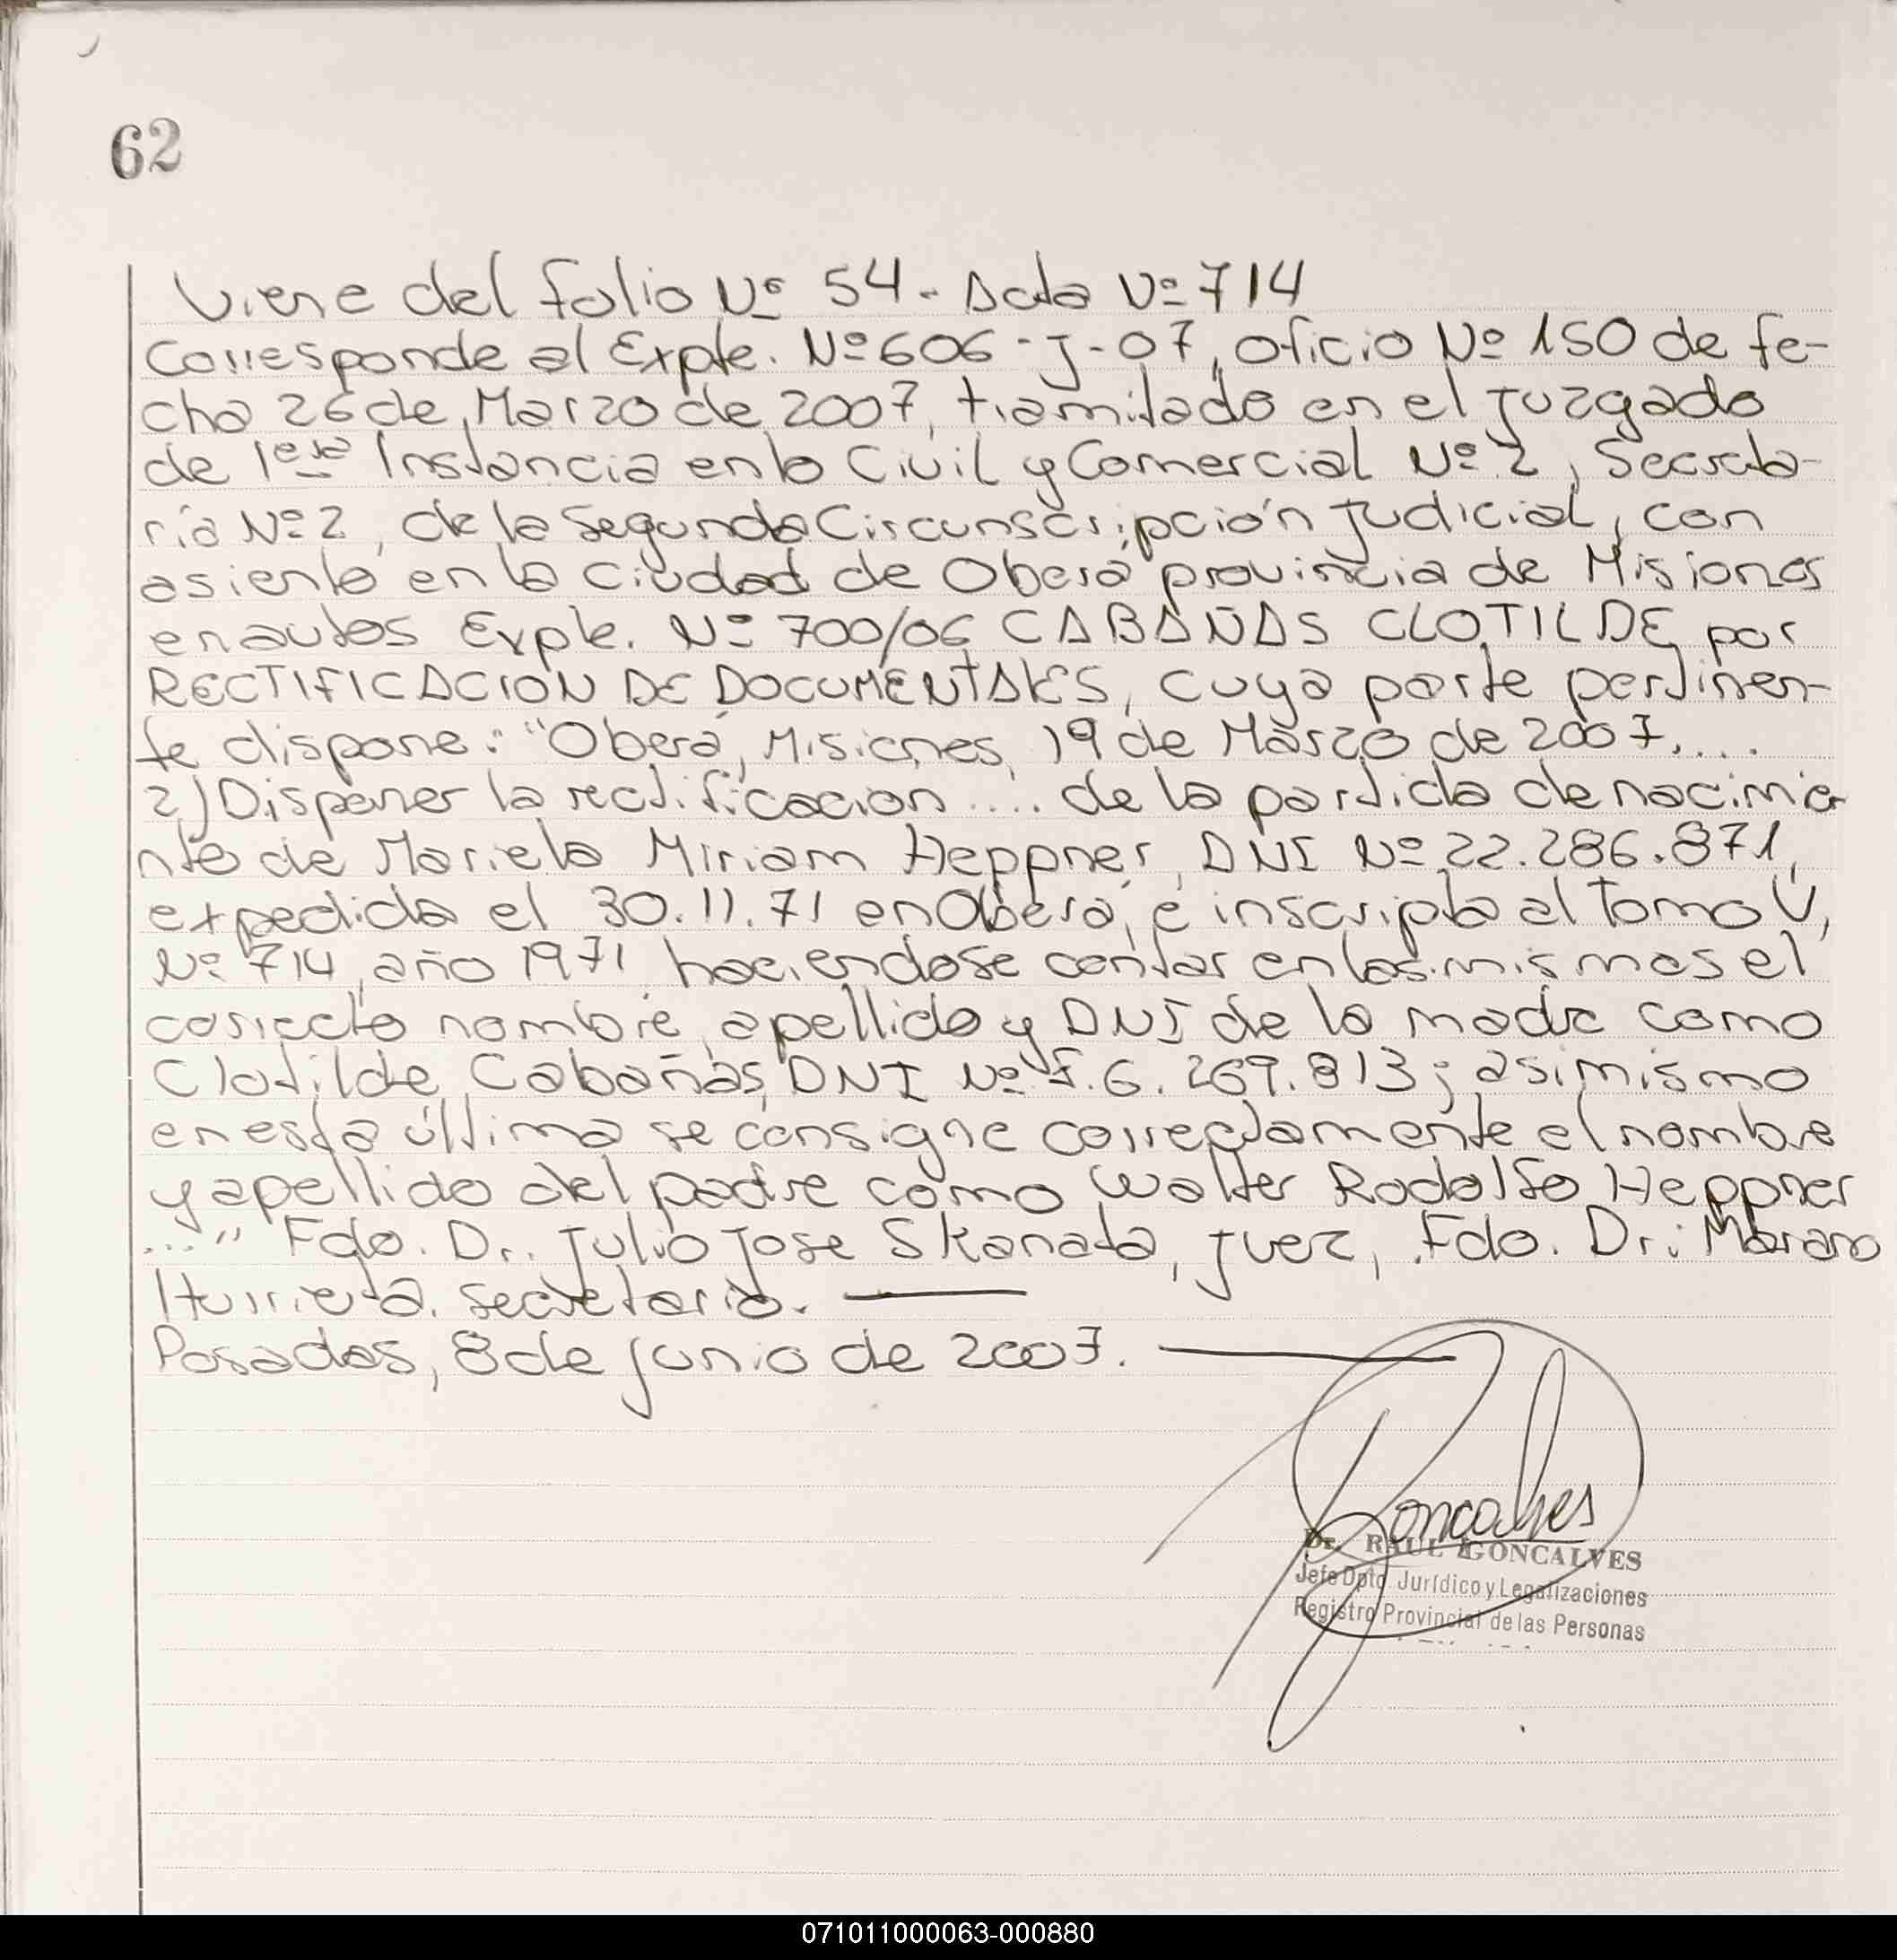 62
Viene del folio Nº 54 - Acta Nº 714
Corresponde al Expte. Nº 606 - J - 07, oficio Nº 150 de fe-
cha 26 de Marzo de 2007, tramitado en el Juzgado
de 1era Instancia en lo Civil y Comercial Nº 2, Secreta-
ría Nº 2, de la Segunda Circunscripción Judicial, con
asiento en la ciudad de Oberá provincia de Misiones
en autos Expte. Nº 700/06 CABAÑAS CLOTILDE por
RECTIFICACION DE DOCUMENTALES, cuya parte pertinen-
te dispone: "Oberá, Misiones, 19 de Marzo de 2007....
2) Disponer la rectificacion .... de la partida de nacimie
nto de Mariela Miriam Heppner, DNI Nº 22.286.871,
expedida el 30.11.71 en Oberá, e inscripta al Tomo V,
Nº 714, año 1971, haciendose contar en las mismas el
correcto nombre, apellido y DNI de la madre como
Clotilde Cabañas, DNI Nº F.6.269.813; asimismo
en esta última se consigne correctamente el nombre
y apellido del padre como Walter Rodolfo Heppner
..." Fdo. Dr. Julio Jose Skanata, Juez, Fdo. Dr.: Mariano
Iturrieta. Secretario.
Posadas, 8 de Junio de 2007.
Goncalves
Dr. RAUL GONCALVES
Jefe Dpto. Jurídico y Legalizaciones
Registro Provincial de las Personas
071011000063-000880